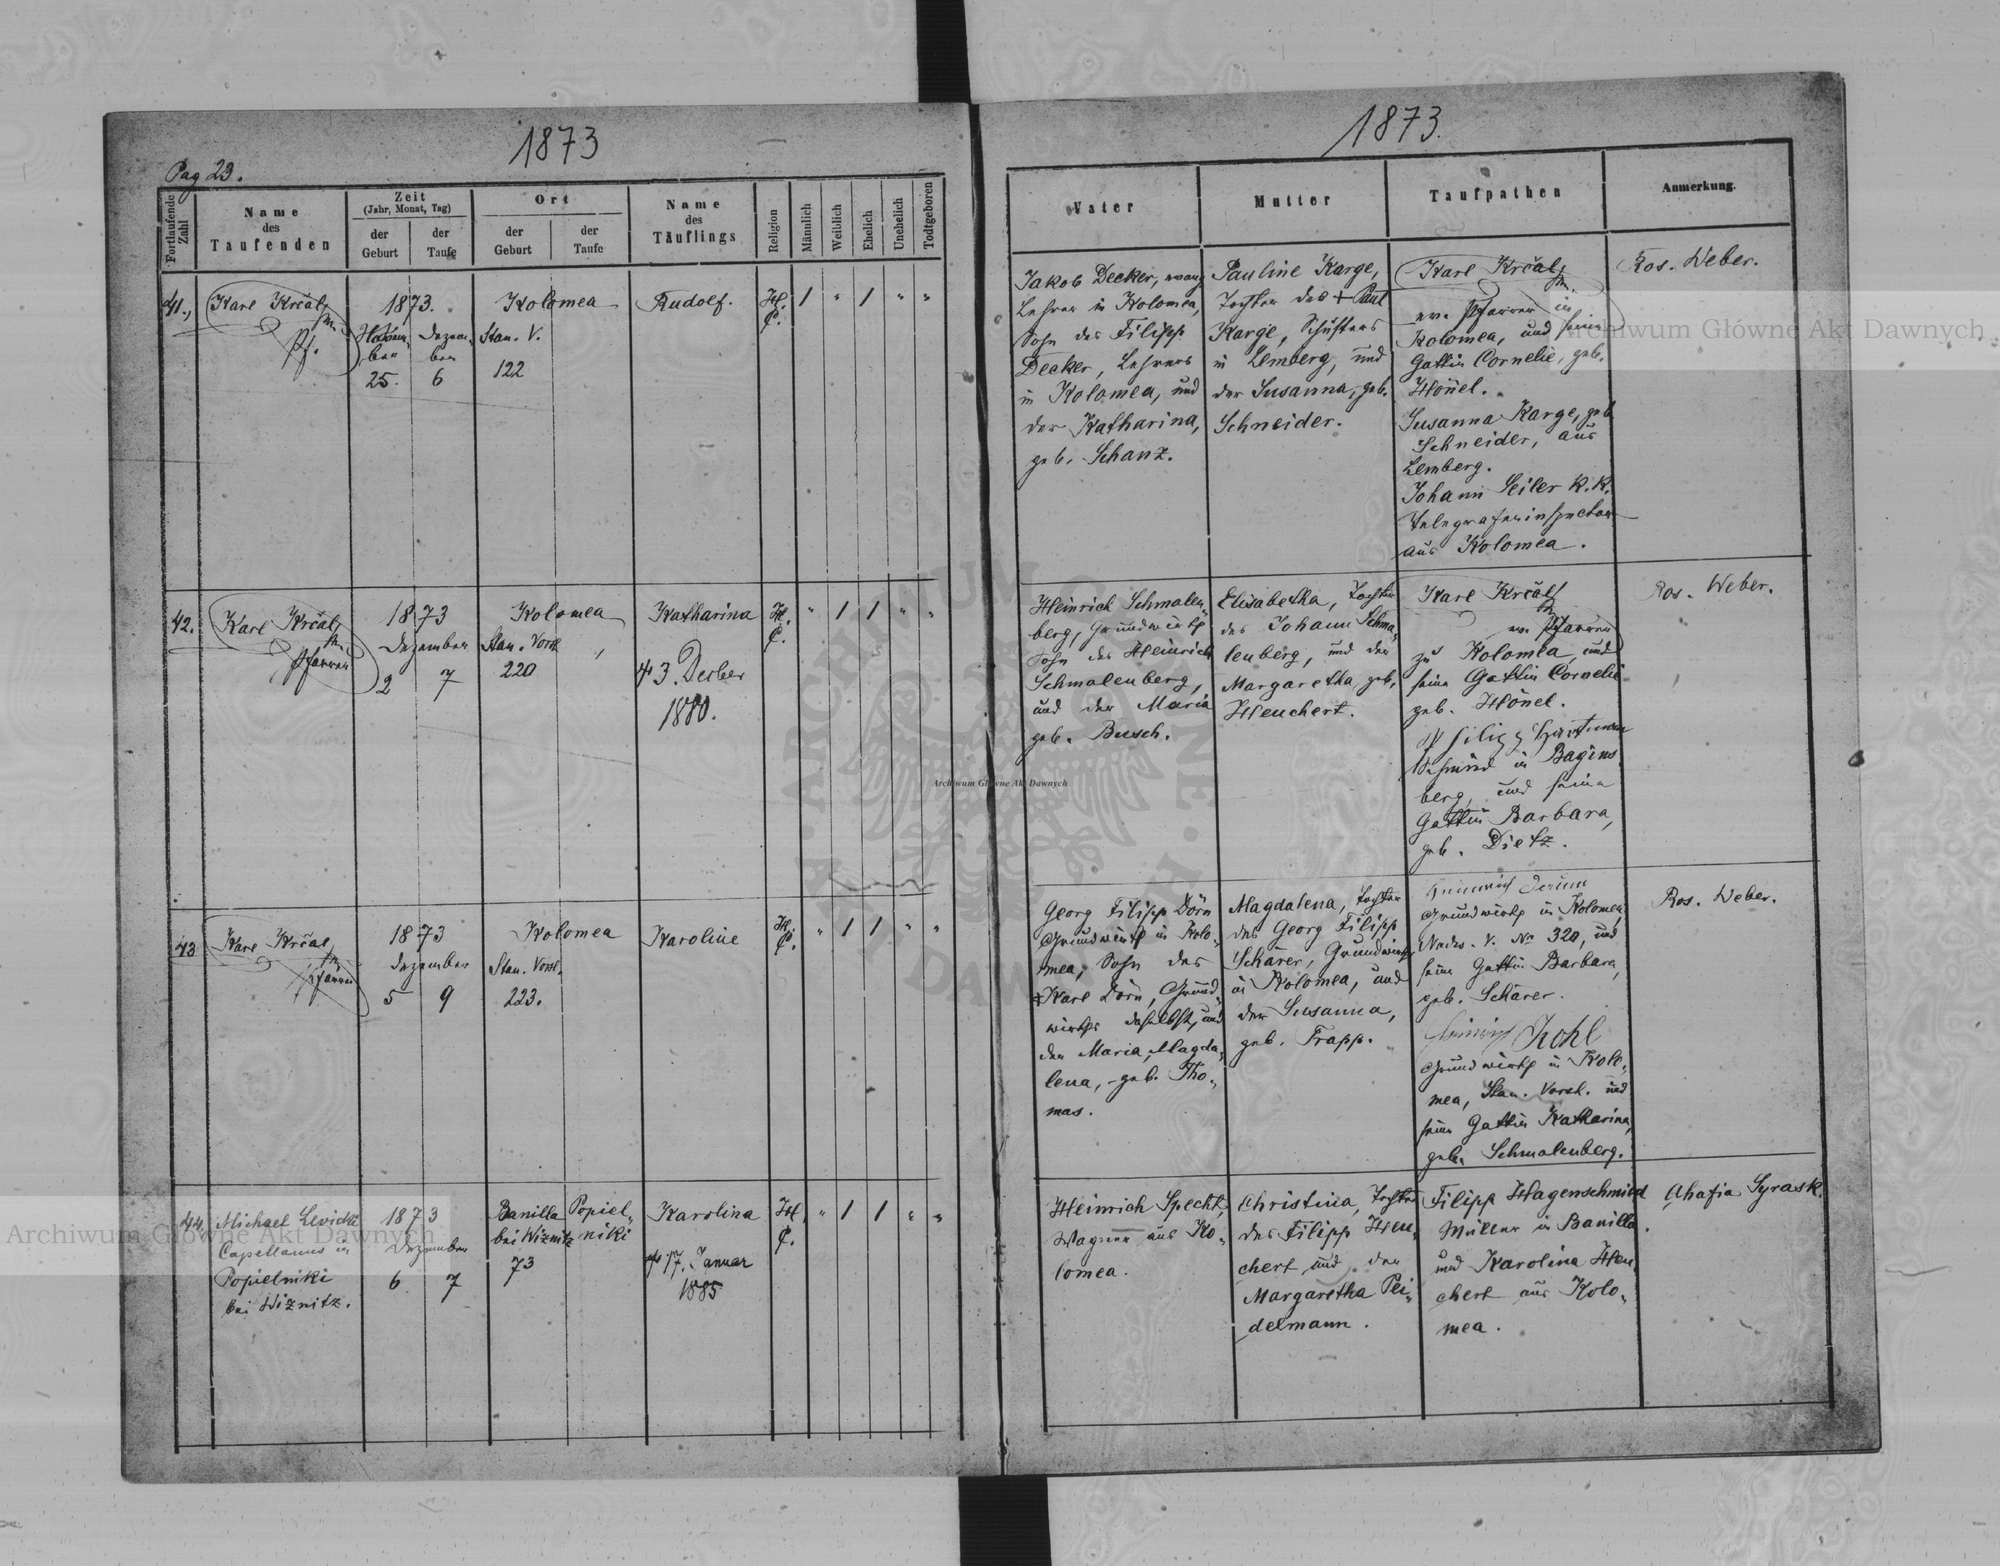 1873
Pag 23.
Fortlaufende Zahl
Name
des
Taufenden
Zeit
(Jahr, Monat, Tag)
der
Geburt
der
Taufe
Ort
der
Geburt
der
Taufe
Name
des
Täuflings
Religion
Männlich
Weiblich
Ehelich
Unehelich
Todtgeboren
41.,
Karl Krčal
Pf.
1873.
Novem-
ber
25.
Dezem-
ber
6
Kolomea
Stan. V.
122
Rudolf.
H.
C.
/ " / " "
42.
Karl Krčal
Pfarrer
1873
Dezember
2 7
Kolomea
Stan. Vorst
220
Katharina
3. Dezber
1880.
H.
C.
" / / " "
43
Karl Krčal
Pfarrer
1873
Dezember
5 9
Kolomea
Stan. Vorst.
223.
Karoline
H.
C.
" / / " "
44.
Michael Levicki
Capellanus in
Popielniki
bei Wiznitz.
1873
Dezember
6 7
Banilla
bei Wiznitz
73
Popiel-
niki
Karolina
17. Januar
1885
H.
C.
" / / " "
1873.
Vater
Mutter
Taufpathen
Anmerkung.
Jakob Decker, evang
Lehrer in Kolomea,
Sohn des Filipp
Decker, Lehrers
in Kolomea, und
der Katharina,
geb. Schanz.
Pauline Karge,
Tochter des + Paul
Karge, Schusters
in Lemberg, und
der Susanna, geb.
Schneider.
Karl Krčal
ev. Pfarrer in
Kolomea, und seine
Gattin Cornelie, geb.
Hönel.
Susanna Karge, geb
Schneider, aus
Lemberg.
Johann Seiler k. k.
Telegrafeninspector
aus Kolomea.
Ros. Weber.
Heinrich Schmalen-
berg, Grundwirth
Sohn des Heinrich
Schmalenberg,
und der Maria
geb. Busch.
Elisabetha, Tochter
des Johann Schma-
lenberg, und der
Margaretha geb.
Heuchert.
Karl Krčal
ev. Pfarrer
zu Kolomea, und
seine Gattin Cornelie
geb. Hönel.
Philipp Hartman
Schmied in Bagins
berg, und seine
Gattin Barbara,
geb. Dietz.
Ros. Weber.
Georg Filipp Dörn
Grundwirth in Kolo-
mea, Sohn des
+Karl Dörn, Grund-
wirths daselbst, und
der Maria, Magda-
lena, geb. Tho-
mas.
Magdalena, Tochter
des Georg Filipp
Schärer, Grundwirths
in Kolomea, und
der Susanna,
geb. Trapp.
Heinrich
Grundwirth in Kolomea
V. No 320, und
seine Gattin Barbara,
geb. Schärer.
Heinrich Kohl
Grundwirth in Kolo-
mea, Stan. Vorst. und
seine Gattin Katharina,
geb. Schmalenberg.
Ros. Weber.
Heinrich Specht,
Wagner aus Ko-
lomea.
Christina, Tochter
des Filipp Heu-
chert und der
Margaretha Pei-
delmann.
Filipp Hagenschmied
Müller in Banilla
und Karolina Heu
chert aus Kolo-
mea.
Ahafia Syrask.
Archiwum Główne Akt Dawnych
Archiwum Główne Akt Dawnych
Archiwum Główne Akt Dawnych